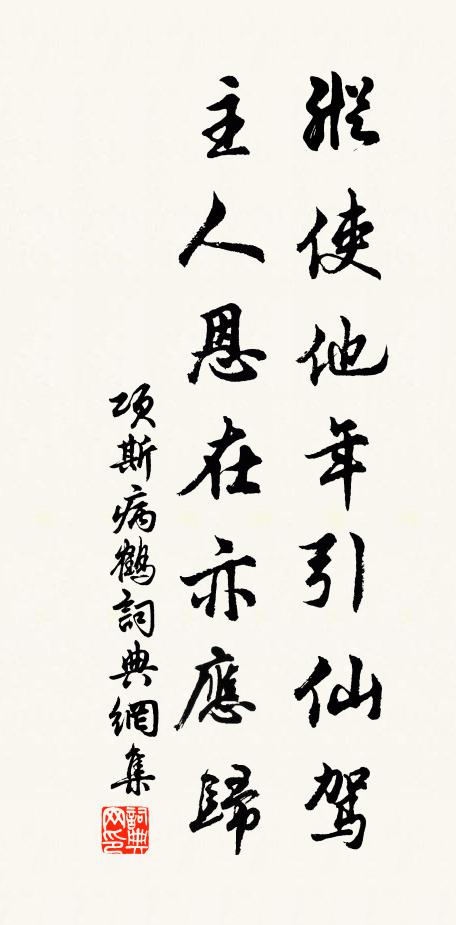 縱使他年引仙駕
主人恩在亦應歸
項斯病鶴詞典網集
詞典
网印